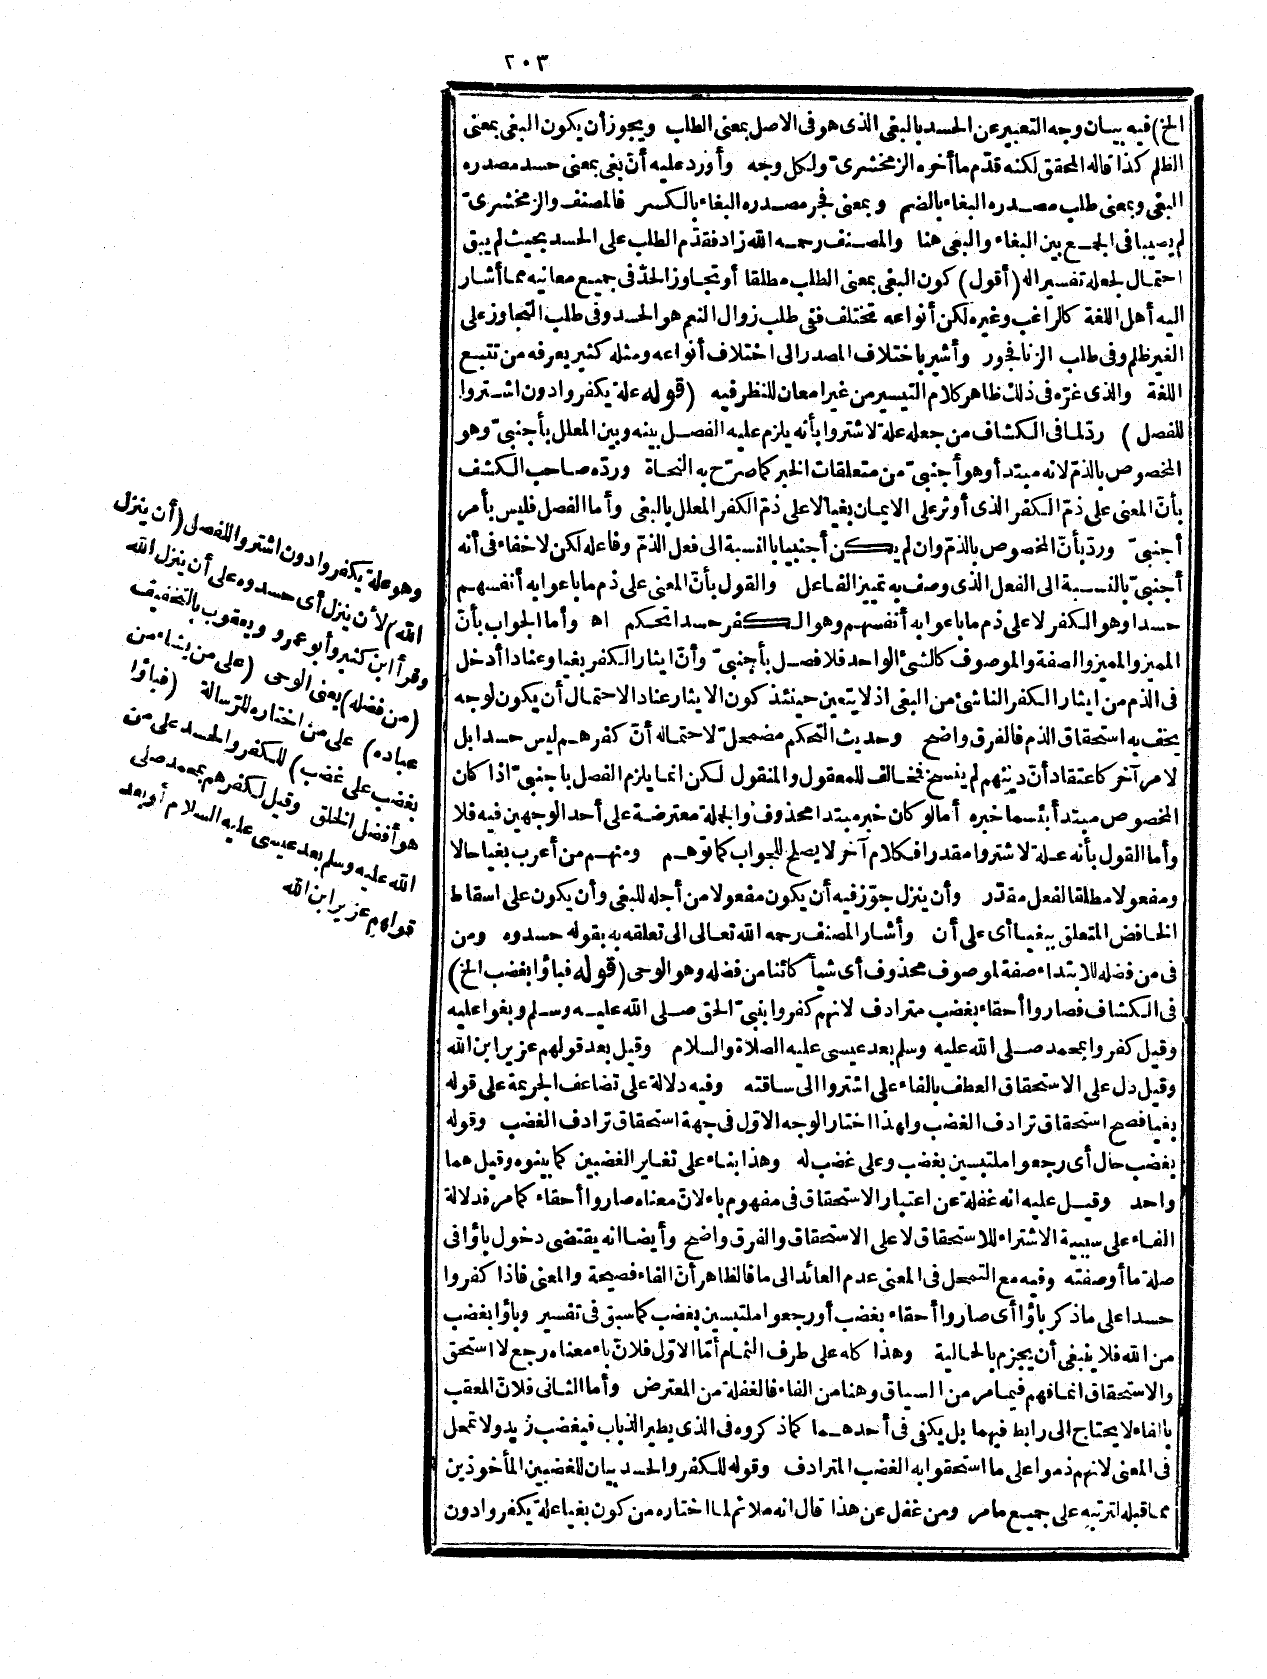 ٢٠٣
الخ) فيه بيان وجه التعبير عن الحسد بالبغى الذى هو فى الاصل بمعنى الطلب ويجوز أن يكون البغى بمعنى
الظلم كذا قاله المحقق لكنه قدّم ما أخره الزمخشرىّ ولكل وجه وأورد عليه أنّ بغى بمعنى حسد مصدره
البغى وبمعنى طلب مصدره البغاء بالضم وبمعنى فجر مصدره البغاء بالكسر فالمصنف والزمخشرىّ
لم يصيبا فى الجمع بين البغاء والبغى هنا والمصنف رحمه الله زاد فقدّم الطلب على الحسد بحيث لم يبق
احتمال لجعله تفسيرا له (أقول) كون البغى بمعنى الطلب مطلقا أو تجاوز الحدّ فى جميع معانيه مما أشار
اليه أهل اللغة كالراغب وغيره لكن أنواعه تختلف ففى طلب زوال النعم هو الحسد وفى طلب التجاوز على
الغير ظلم وفى طلب الزنا فجور وأشير باختلاف المصدر الى اختلاف أنواعه ومثله كثير يعرفه من تتبع
اللغة والذى غرّه فى ذلك ظاهر كلام التيسير من غير امعان للنظر فيه (قوله علة يكفروا دون اشتروا
للفصل) ردّ لما فى الكشاف من جعله علة لاشتروا بأنه يلزم عليه الفصل بينه وبين المعلل بأجنبىّ وهو
المخصوص بالذمّ لانه مبتدأ وهو أجنبىّ من متعلقات الخبر كما صرّح به النحاة وردّه صاحب الكشف
بأنّ المعنى على ذمّ الكفر الذى أوثر على الايمان بغيا لا على ذمّ الكفر المعلل بالبغى وأما الفصل فليس بأمر
أجنبىّ وردّ بأنّ المخصوص بالذمّ وان لم يكن أجنبيا بالنسبة الى فعل الذمّ وفاعله لكن لا خفاء فى أنه
أجنبىّ بالنسبة الى الفعل الذى وصف به تمييز الفاعل والقول بأنّ المعنى على ذم ما باعوا به أنفسهم
حسدا وهو الكفر لا على ذم ما باعوا به أنفسهم وهو الكفر حسدا تحكم اه وأما الجواب بأنّ
المميز والمميز والصفة والموصوف كالشئ الواحد فلا فصل بأجنبىّ وأنّ ايثار الكفر بغيا وعنادا أدخل
فى الذم من ايثار الكفر الناشئ من البغى اذ لا يتعين حينئذ كون الايثار عنادا لاحتمال أن يكون لوجه
يخف به استحقاق الذم فالفرق واضح وحديث التحكم مضمحلّ لاحتماله أنّ كفرهم ليس حسدا بل
لامر آخر كاعتقاد أنّ دينهم لم ينسخ فمخالف للمعقول والمنقول لكن انما يلزم الفصل باجنبىّ اذا كان
المخصوص مبتدأ بئسما خبره أما لو كان خبر مبتدا محذوف والجملة معترضة على أحد الوجهين فيه فلا
وأما القول بأنه علة لاشتروا مقدرا فكلام آخر لا يصلح للجواب كما توهم ومنهم من أعرب بغيا حالا
ومفعولا مطلقا لفعل مقدّر وأن ينزل جوّز فيه أن يكون مفعولا من أجله للبغى وأن يكون على اسقاط
الخافض المتعلق ببغيا أى على أن وأشار المصنف رحمه الله تعالى الى تعلقه به بقوله حسدوه ومن
فى من فضله للابتداء صفة لموصوف محذوف أى شيأ كائنا من فضله وهو الوحى (قوله فباؤا بغضب الخ)
فى الكشاف فصاروا أحقاء بغضب مترادف لانهم كفروا بنبىّ الحق صلى الله عليه وسلم وبغوا عليه
وقيل كفروا بمحمد صلى الله عليه وسلم بعد عيسى عليه الصلاة والسلام وقيل بعد قولهم عزير ابن الله
وقيل دل على الاستحقاق العطف بالفاء على اشتروا الى ساقته وفيه دلالة على تضاعف الجريمة على قوله
بغيا فصح استحقاق ترادف الغضب ولهذا اختار الوجه الاوّل فى جهة استحقاق ترادف الغضب وقوله
بغضب حال أى رجعوا ملتبسين بغضب وعلى غضب له وهذا بناء على تغاير الغضبين كما بينوه وقيل هما
واحد وقيل عليه انه غفلة عن اعتبار الاستحقاق فى مفهوم باء لانّ معناه صاروا أحقاء كما مر فدلالة
الفاء على سببية الاشتراء للاستحقاق لا على الاستحقاق والفرق واضح وأيضا انه يقتضى دخول باؤا فى
صلة ما أو صفته وفيه مع التمحل فى المعنى عدم العائد الى ما فالظاهر أنّ الفاء فصيحة والمعنى فاذا كفروا
حسدا على ما ذكر باؤا أى صاروا أحقاء بغضب أو رجعوا ملتبسين بغضب كما سبق فى تفسير وباؤا بغضب
من الله فلا ينبغى أن يجزم بالحالية وهذا كله على طرف الثمام أمّا الاوّل فلانّ باء معناه رجع لا استحق
والاستحقاق انما فهم فيما مر من السياق وهنا من الفاء فالغفلة من المعترض وأما الثانى فلانّ المعقب
بالفاء لا يحتاج الى رابط فيهما بل يكفى فى أحدهما كما ذكروه فى الذى يطير الذباب فيغضب زيد ولا تمحل
فى المعنى لانهم ذموا على ما استحقوا به الغضب المترادف وقوله للكفر والحسد بيان للغضبين المأخوذين
مما قبله لترتبه على جميع ما مر ومن غفل عن هذا قال انه ملائم لما اختاره من كون بغيا علة يكفروا دون
وهو علة يكفروا دون اشتروا للفصل (أن ينزل
الله) لأن ينزل أى حسدوه على أن ينزل الله
وقرأ ابن كثير وأبو عمرو ويعقوب بالتخفيف
(من فضله) يعنى الوحى (على من يشاء من
عباده) على من اختاره للرسالة (فباؤا
بغضب على غضب) للكفر والحسد على من
هو أفضل الخلق وقيل لكفرهم بمحمد صلى
الله عليه وسلم بعد عيسى عليه السلام أو بعد
قولهم عزير ابن الله